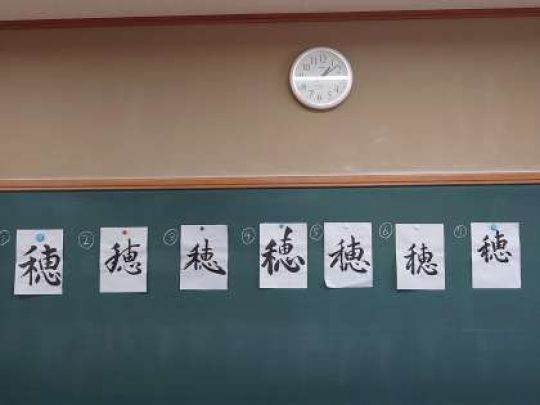 ① 穂
② 穂
③ 穂
④ 穂
⑤ 穂
⑥ 穂
⑦ 穂